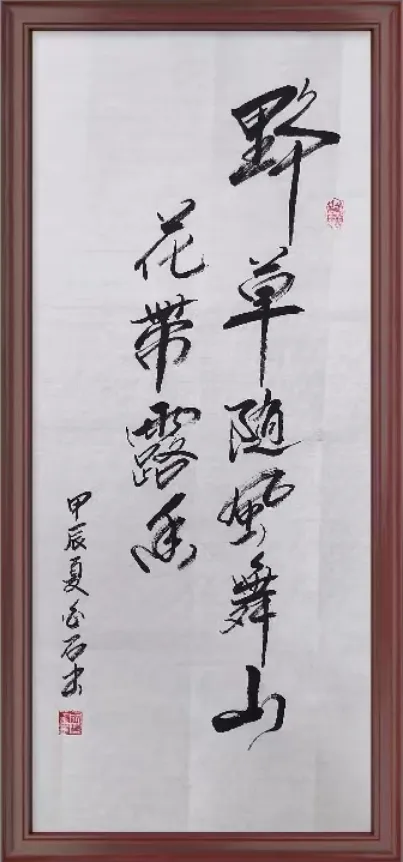 野草随風舞山
花帶露香
甲辰夏石书